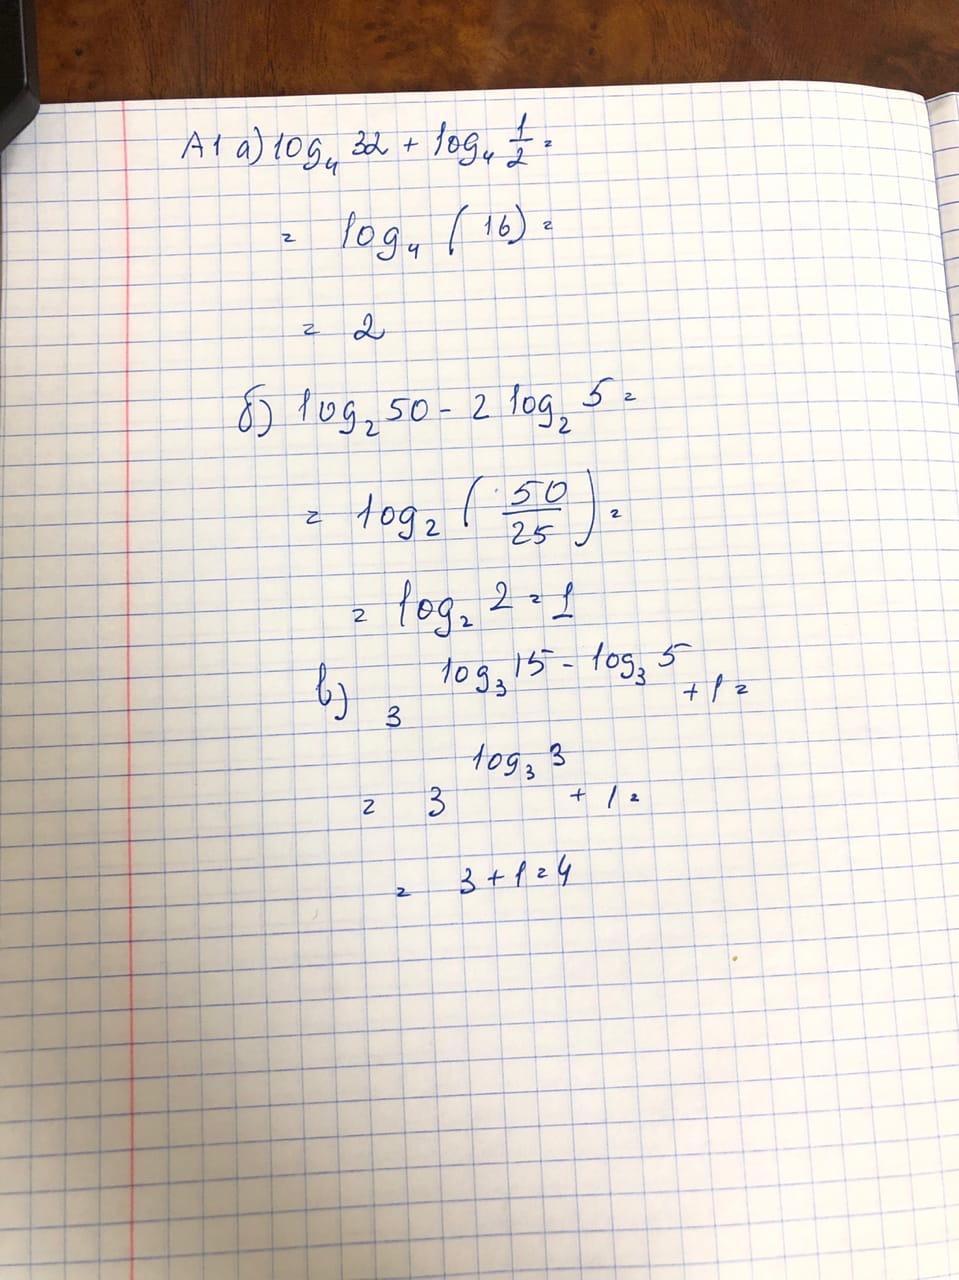 А1 а) log₄ 32 + log₄ 1/2 =
= log₄ (16) =
= 2
б) log₂ 50 - 2 log₂ 5 =
= log₂ (50/25) =
= log₂ 2 = 1
в) 3^(log₃ 15 - log₃ 5) + 1 =
= 3^(log₃ 3) + 1 =
= 3 + 1 = 4